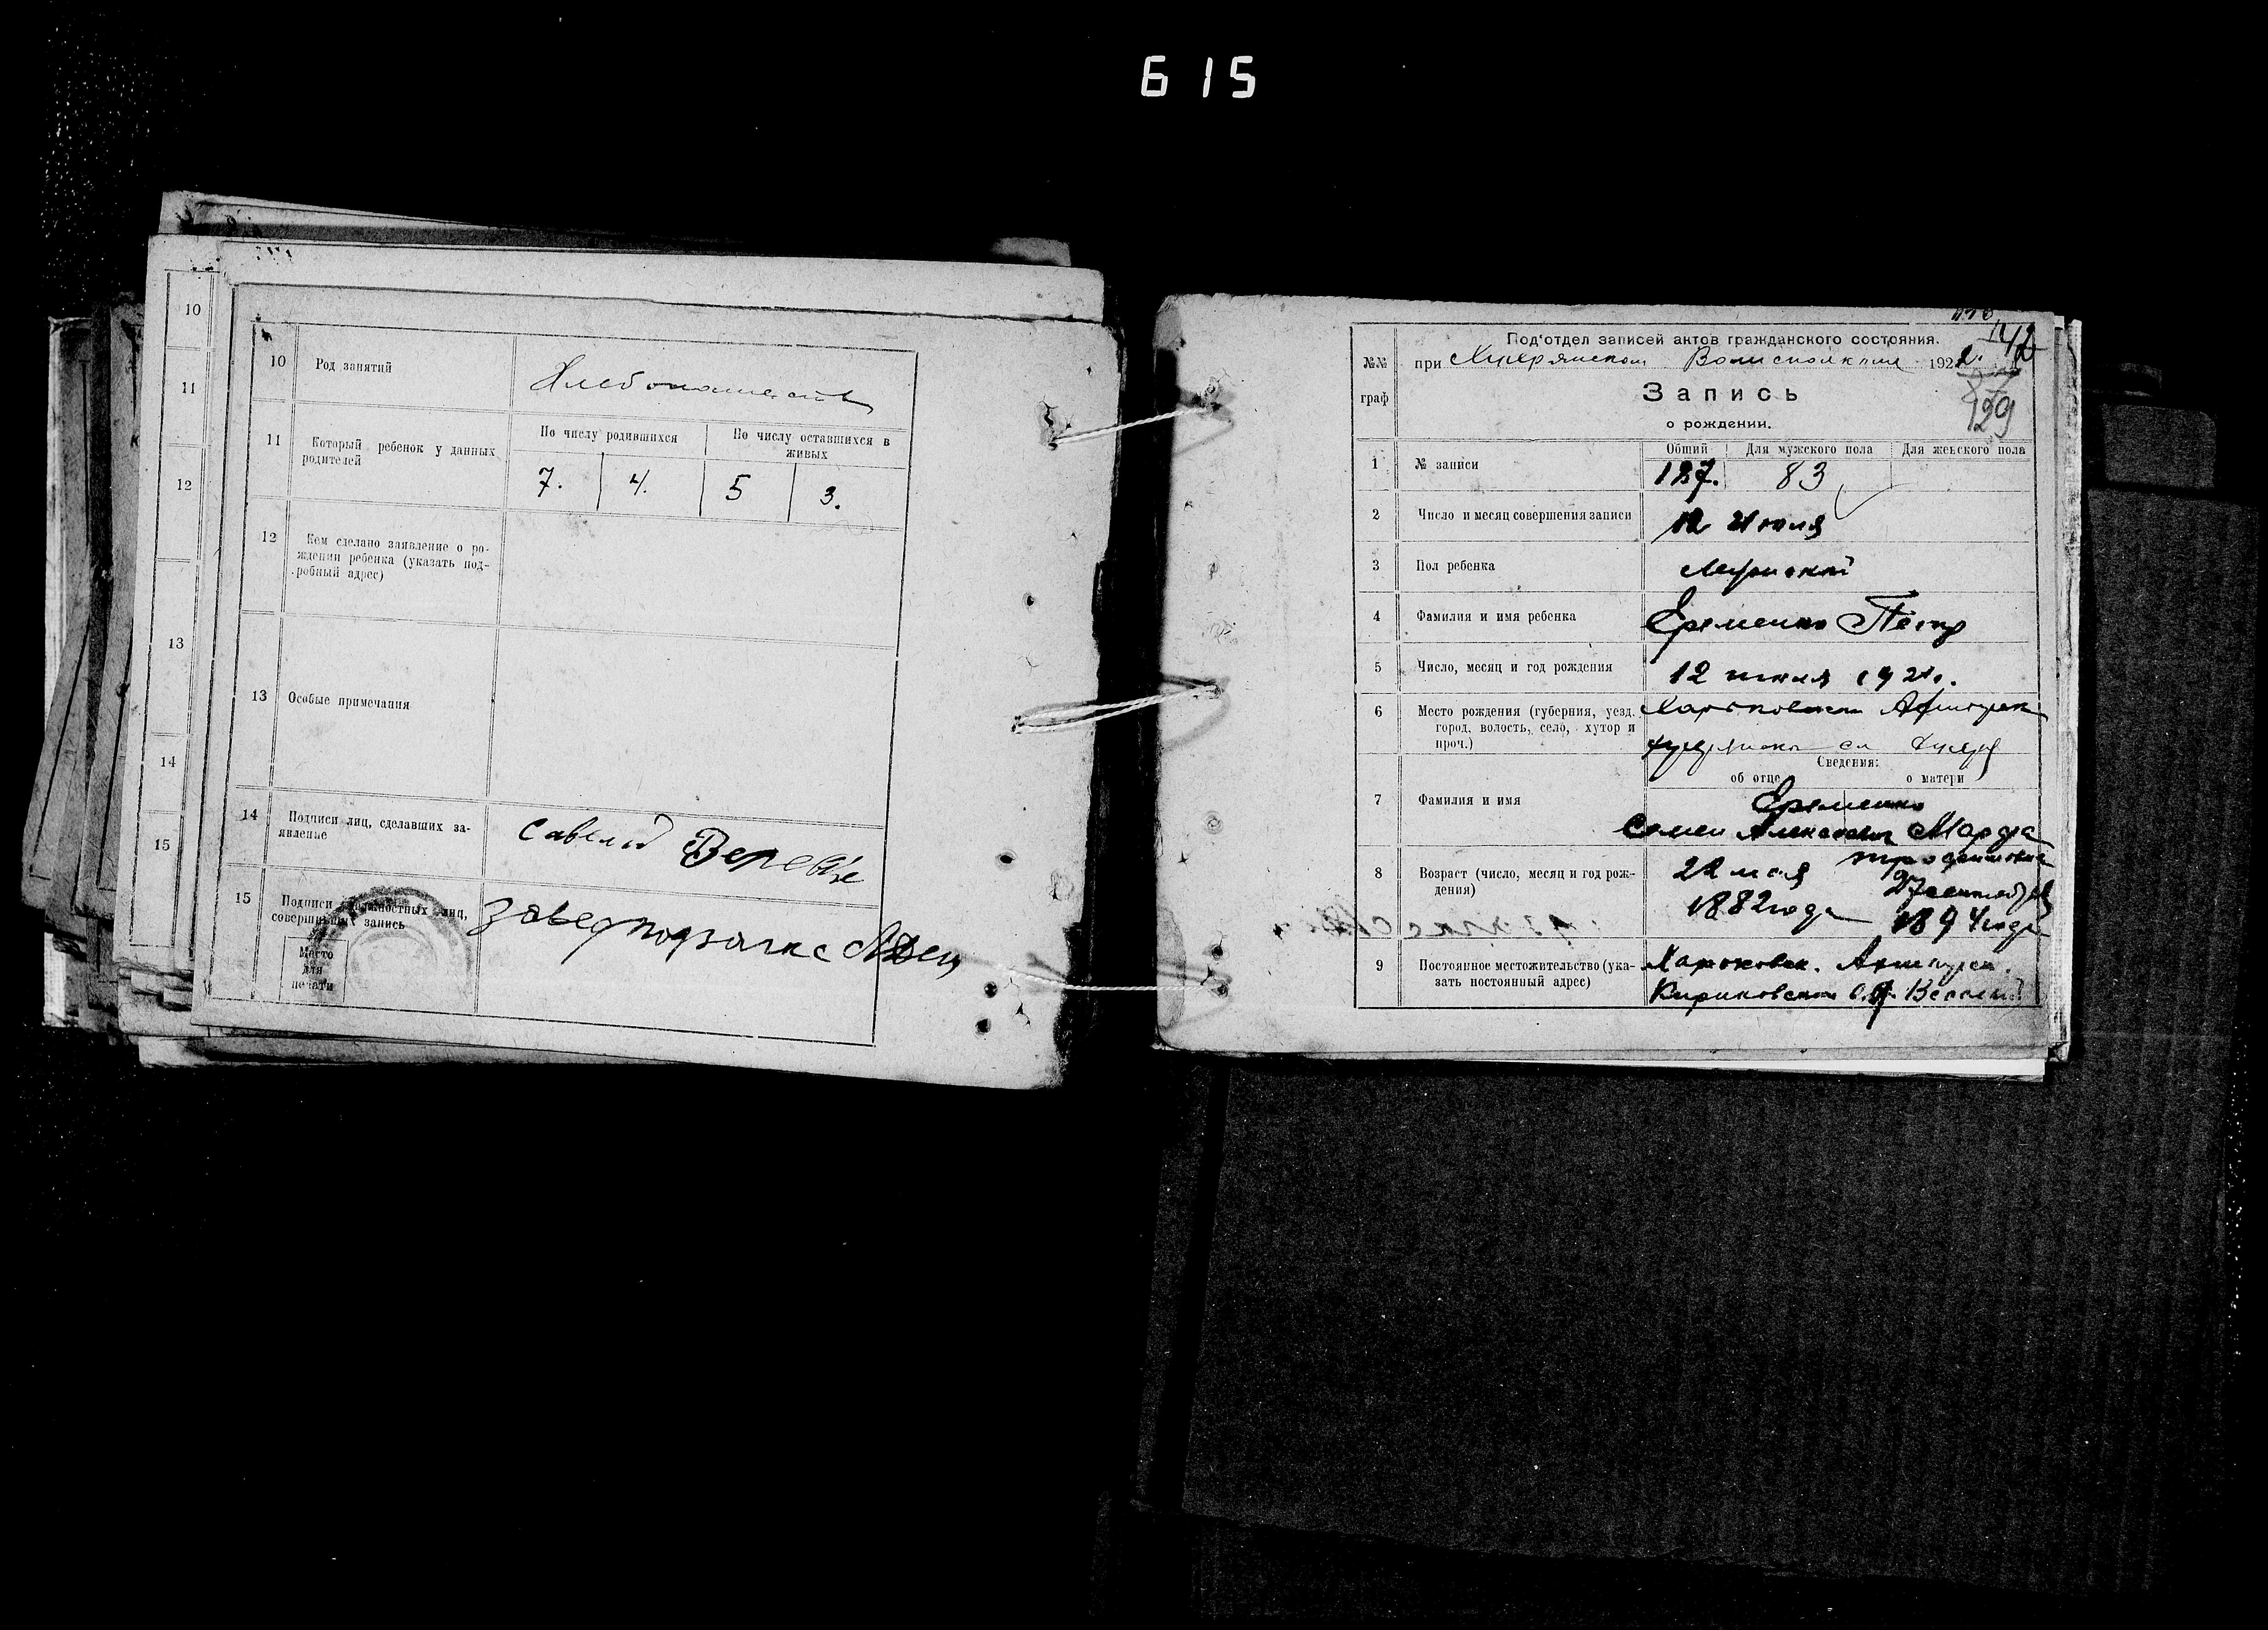 615
10
11
12
13
14
15
10 Род занятий
11 Который ребенок у данных родителей
По числу родившихся
По числу оставшихся в живых
7. 4. 5 3.
12 Кем сделано заявление о ро-
ждении ребенка (указать под-
робный адрес)
13 Особые примечания
14 Подписи лиц, сделавших за-
явление
Савелий
15 Подписи должностных лиц,
совершивших запись
Место
для
печати
142
129
Под'отдел записей актов гражданского состояния.
№№ граф
при Волисполкоме 192
Запись
о рождении.
Общий Для мужского пола Для женского пола
1 № записи 127. 83
2 Число и месяц совершения записи 12 Июля
3 Пол ребенка Мужской
4 Фамилия и имя ребенка Еременко Петр
5 Число, месяц и год рождения 12 июля
6 Место рождения (губерния, уезд,
город, волость, село, хутор и
проч.)
Сведения:
об отце о матери
7 Фамилия и имя
Еременко
Семен Марфа
8 Возраст (число, месяц и год рож-
дения)
22 мая
1882 года
27 сентября
1894 года
9 Постоянное местожительство (ука-
зать постоянный адрес)
Харьковск.